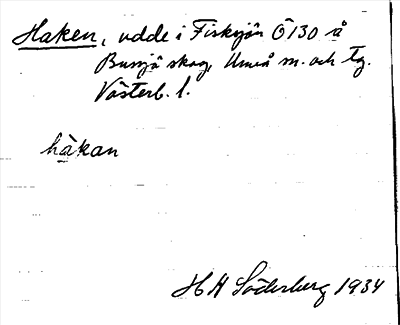 Haken, udde i Fisksjön Ö130 å
Bursjö skog, Umeå sn. och tg.
Västerb. l.
hàkan
H H Söderberg 1934